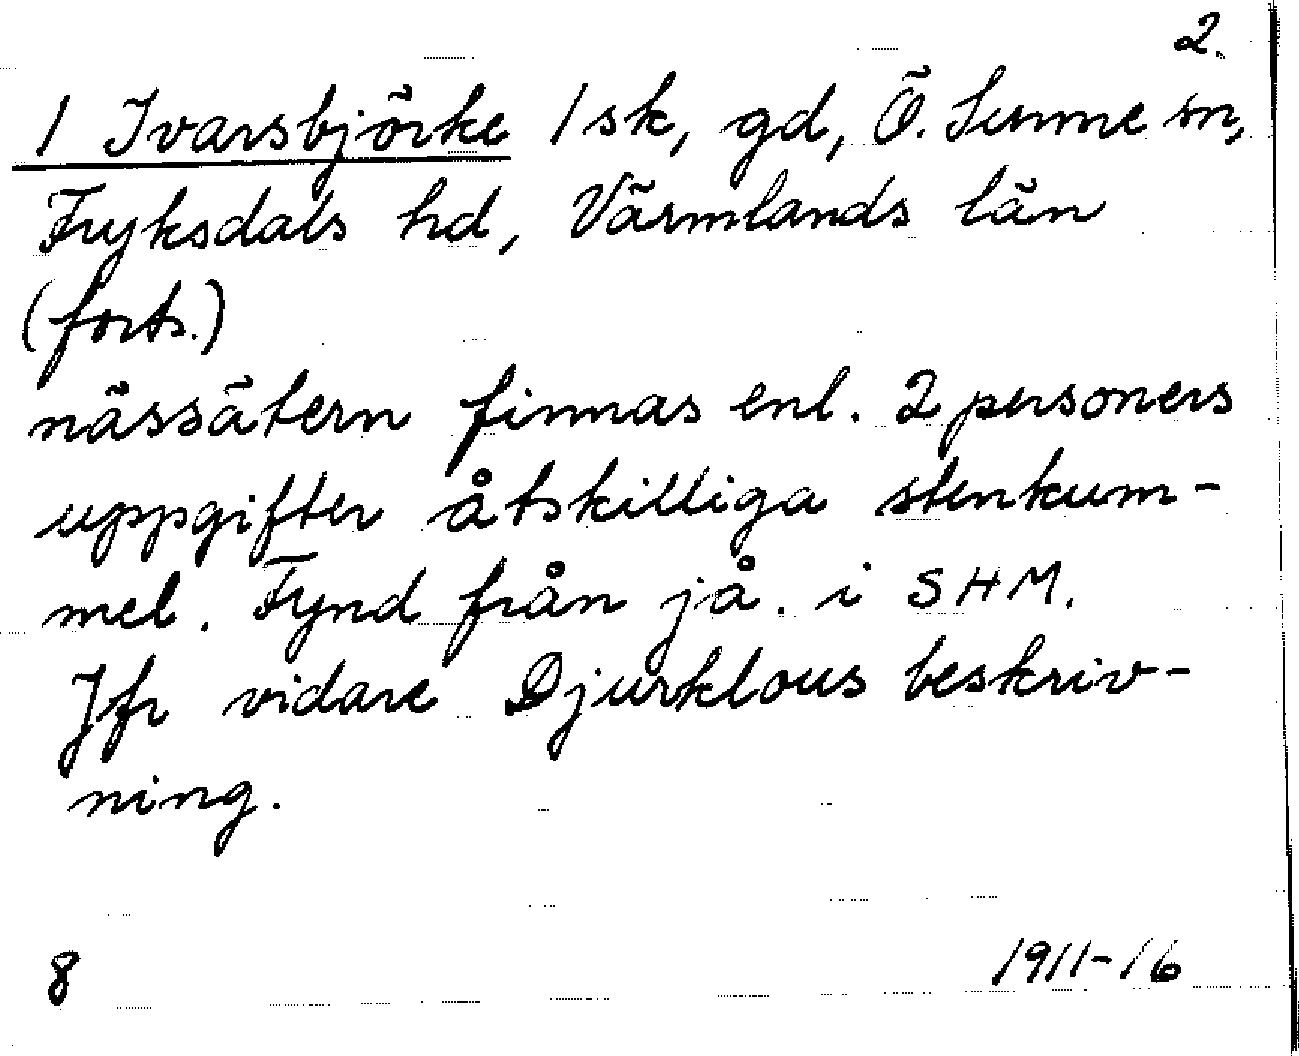 2.
1 Ivarsbjörke 1 sk, gd, Ö. Sunne sn,
Fryksdals hd, Värmlands län
(forts.)
nässätern finnas enl. 2 personers
uppgifter åtskilliga stenkum-
mel. Fynd från jå. i SHM.
Jfr vidare Djurklous beskriv-
ning.
8 1911-16